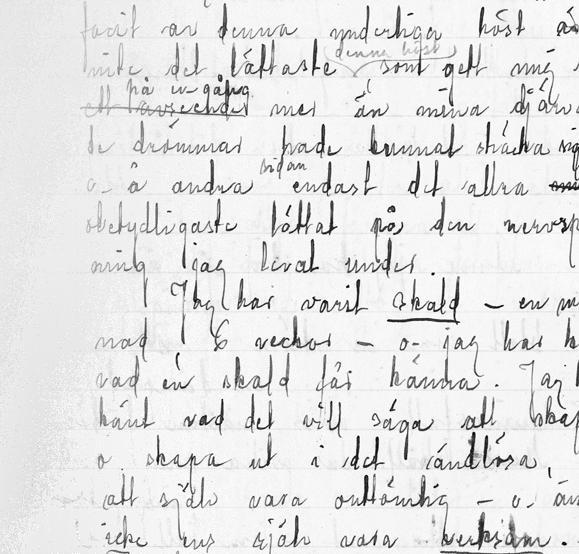 facit av denna underliga höst
denna höst
inte det lättaste som gett mig
på en gång
ett avseende mer än mina djär-
de drömmar hade kunnat sträcka sig
sidan
o. å andra endast det allra
obetydligaste lättat på den nervsp
ning jag levat under.
Jag har varit skald – en m
nad 6 veckor – o. jag har k
vad en skald får känna. Jag h
känt vad det vill säga att skap
o skapa ut i det ändlösa,
att själv vara outtömlig – o. än
icke ens själv vara verksam.